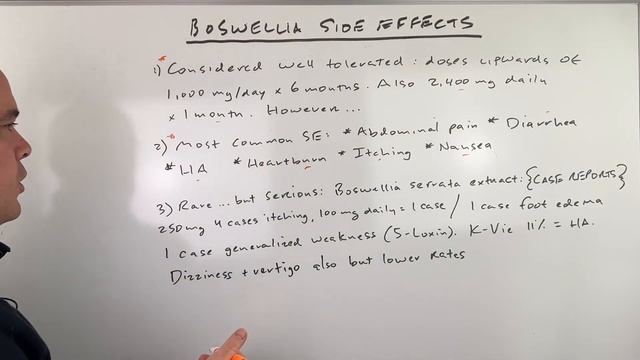 BOSWELLIA SIDE EFFECTS
1) Considered well tolerated: doses upwards of
1,000 mg/day x 6 months. Also 2,400 mg daily
x 1 month. However...
2) Most common SE: * Abdominal pain * Diarrhea
* HA * Heartburn * Itching * Nausea
3) Rare... but serious: Boswellia serrata extract: {CASE REPORTS}
250mg 4 cases itching, 100 mg daily = 1 case / 1 case foot edema
1 case generalized weakness (5-Loxin). K-Vie 11% = HA.
Dizziness + vertigo also but lower rates